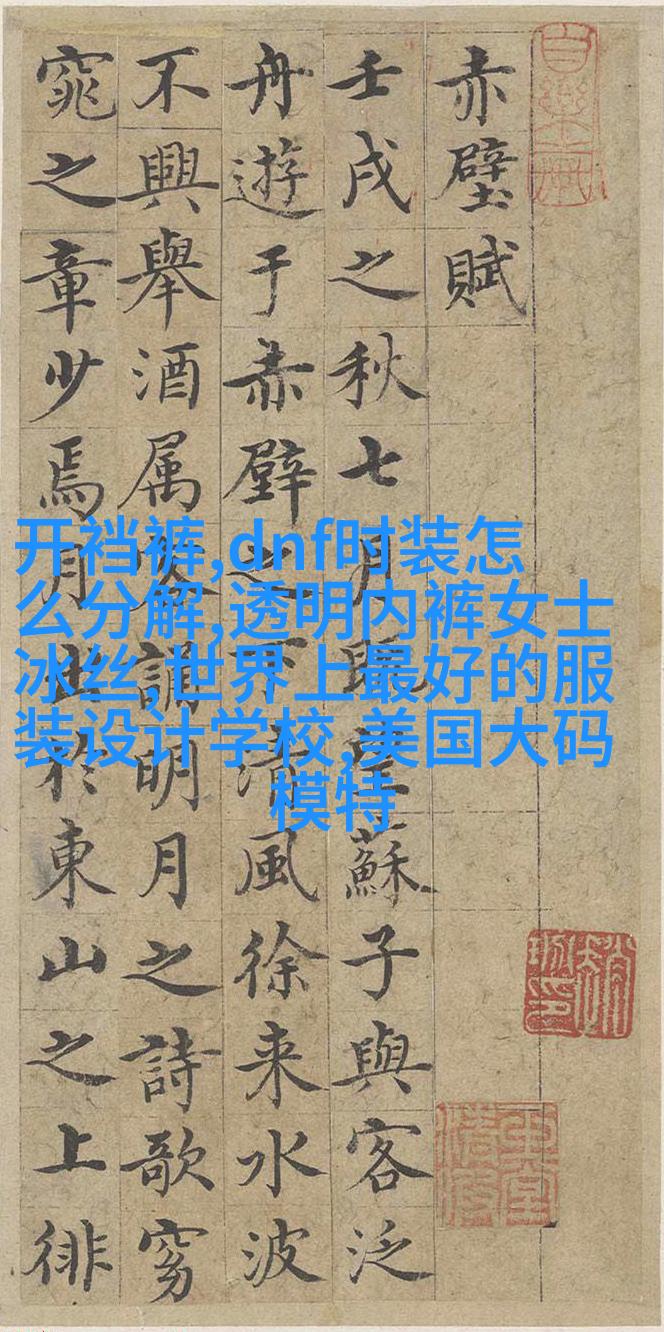 赤壁賦
壬戌之秋七月既望蘇子與客泛
舟遊于赤壁之下清風徐来水波
不興舉酒属客誦明月之詩歌窈
窕之章少焉月出於東山之上徘
开裆裤,dnf时装怎
么分解,透明内裤女士
冰丝,世界上最好的服
装设计学校,美国大码
模特